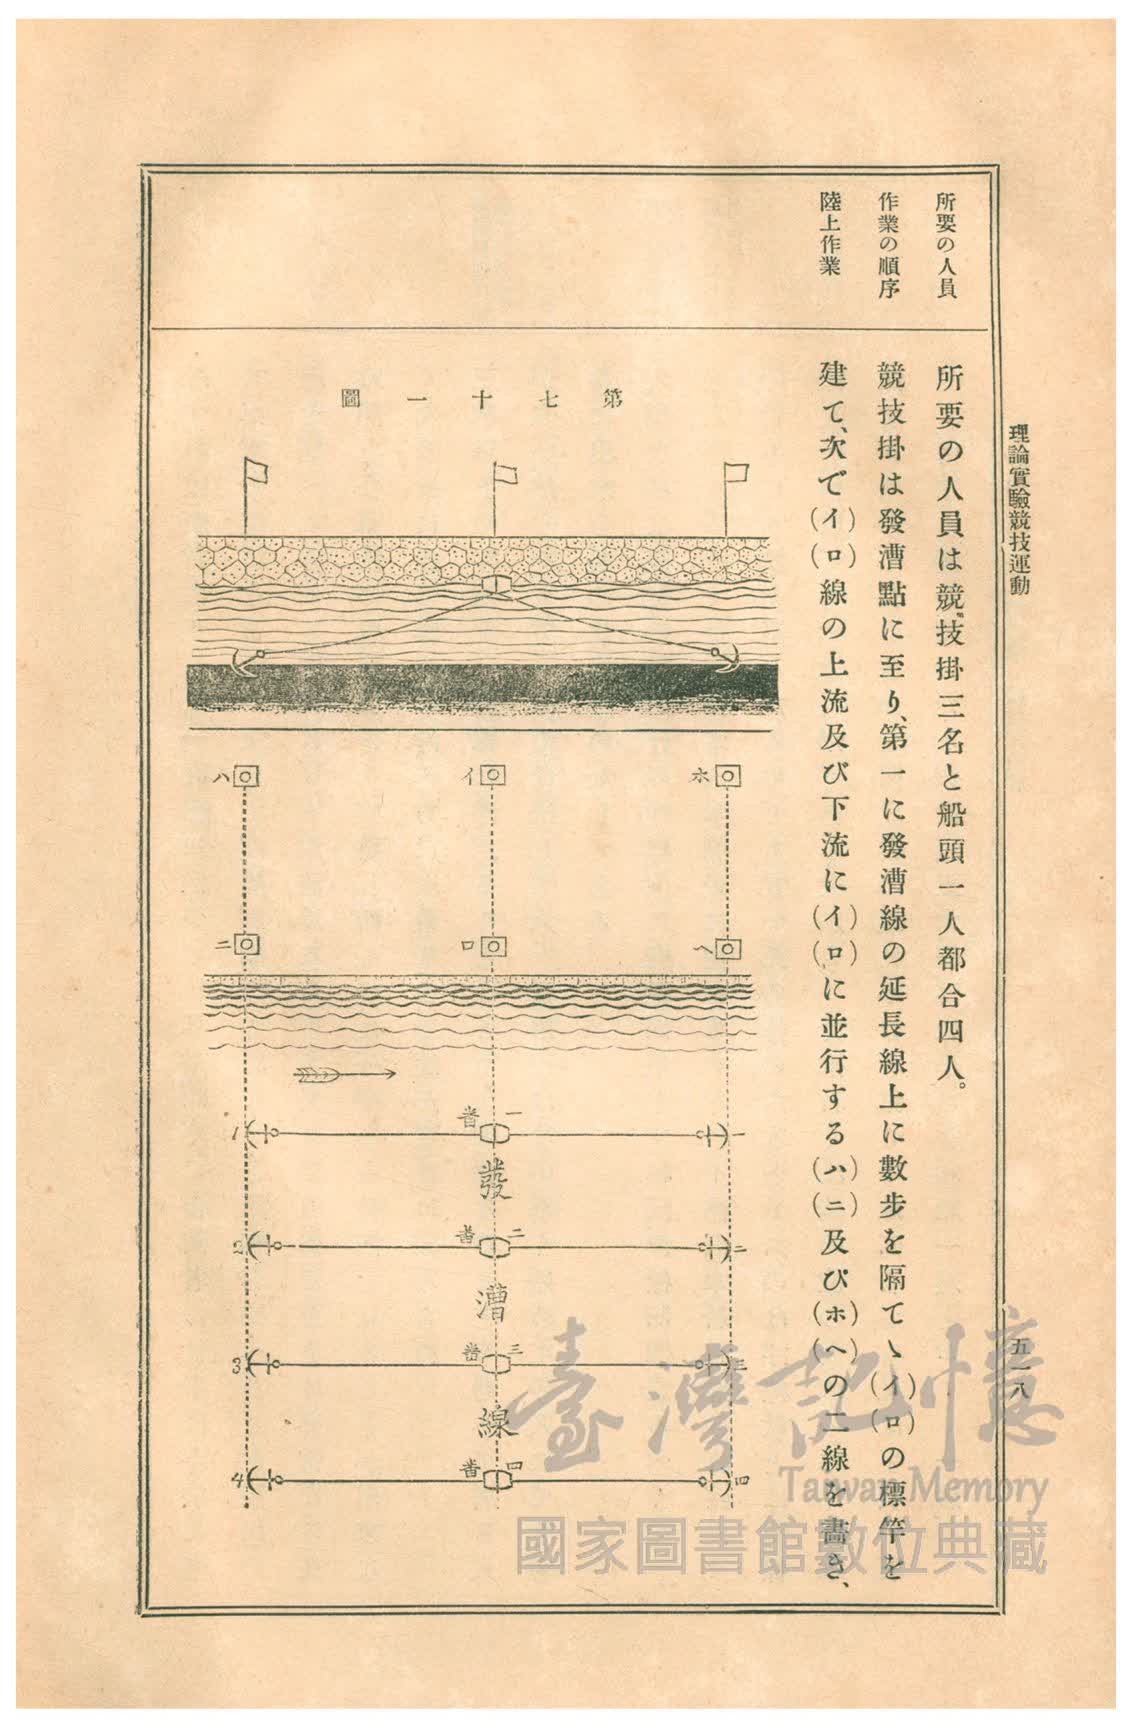 理論實驗競技運動
五一八
所要の人員
作業の順序
陸上作業
所要の人員は競技掛三名と船頭一人都合四人。
競技掛は發漕點に至り、第一に發漕線の延長線上に數步を隔てゝ(イ)(ロ)の標竿を
建て、次で(イ)(ロ)線の上流及び下流に(イ)(ロ)に並行する(ハ)(ニ)及び(ホ)(ヘ)の二線を畵き、
第七十一圖
ハ イ ホ
ニ ロ ヘ
1 一番 一
發
2 二番 二
漕
3 三番 三
線
4 四番 四
臺灣記憶
Taiwan Memory
國家圖書館數位典藏